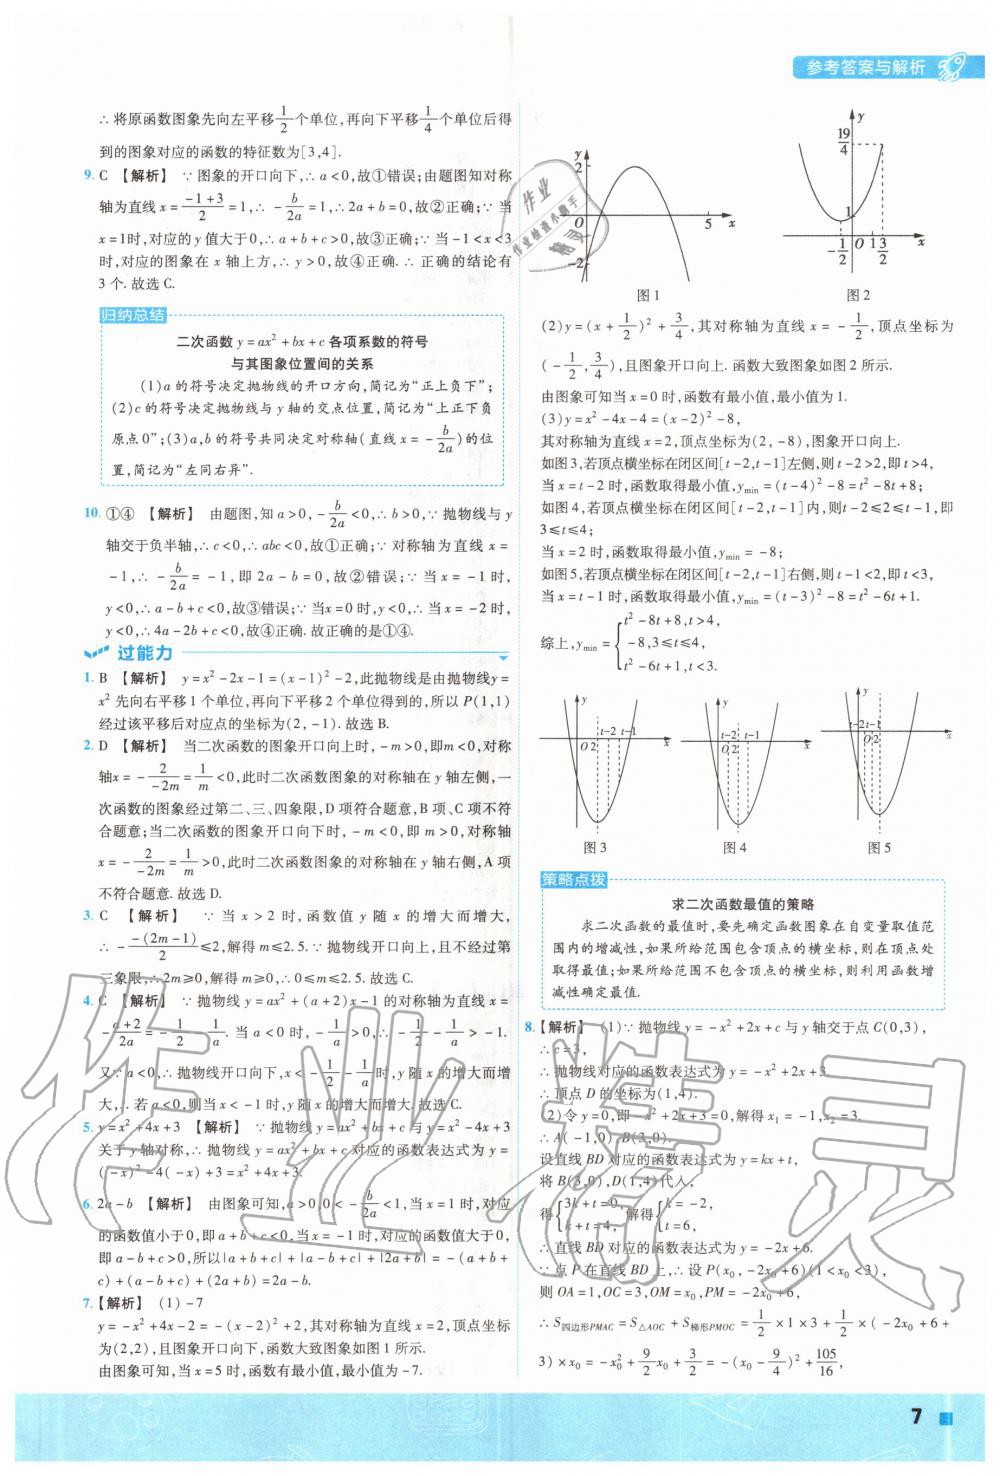 参考答案与解析
∴将原函数图象先向左平移1/2个单位,再向下平移1/4个单位后得
到的图象对应的函数的特征数为[3,4].
9. C 【解析】 ∵图象的开口向下,∴a<0,故①错误;由题图知对称
轴为直线x=(-1+3)/2=1,∴-b/2a=1,∴2a+b=0,故②正确;∵当
x=1时,对应的y值大于0,∴a+b+c>0,故③正确;∵当-1<x<3
时,对应的图象在x轴上方,∴y>0,故④正确.∴正确的结论有
3个.故选C.
归纳总结
二次函数y=ax²+bx+c各项系数的符号
与其图象位置间的关系
(1)a的符号决定抛物线的开口方向,简记为“正上负下”;
(2)c的符号决定抛物线与y轴的交点位置,简记为“上正下负
原点0”;(3)a,b的符号共同决定对称轴(直线x=-b/2a)的位
置,简记为“左同右异”.
10. ①④ 【解析】 由题图,知a>0,-b/2a<0,∴b>0,∵抛物线与y
轴交于负半轴,∴c<0,∴abc<0,故①正确;∵对称轴为直线x=
-1,∴-b/2a=-1,即2a-b=0,故②错误;∵当x=-1时,
y<0,∴a-b+c<0,故③错误;∵当x=0时,y<0,∴当x=-2时,
y<0,∴4a-2b+c<0,故④正确.故正确的是①④.
过能力
1. B 【解析】 y=x²-2x-1=(x-1)²-2,此抛物线是由抛物线y=
x²先向右平移1个单位,再向下平移2个单位得到的,所以P(1,1)
经过该平移后对应点的坐标为(2,-1).故选B.
2. D 【解析】 当二次函数的图象开口向上时,-m>0,即m<0,对称
轴x=-2/(-2m)=1/m<0,此时二次函数图象的对称轴在y轴左侧,一
次函数的图象经过第二、三、四象限,D项符合题意,B项、C项不符
合题意;当二次函数的图象开口向下时,-m<0,即m>0,对称轴
x=-2/(-2m)=1/m>0,此时二次函数图象的对称轴在y轴右侧,A项
不符合题意.故选D.
3. C 【解析】 ∵当x>2时,函数值y随x的增大而增大,
∴-(-(2m-1))/2≤2,解得m≤2.5.∵抛物线开口向上,且不经过第
三象限,∴2m≥0,解得m≥0,∴0≤m≤2.5.故选C.
4. C 【解析】 ∵抛物线y=ax²+(a+2)x-1的对称轴为直线x=
-(a+2)/2a=-1/2-1/a.当a<0时,-1/a>0,∴-1/2-1/a>-1/2>-1.
又∵a<0,∴抛物线开口向下,x<-1/2-1/a时,y随x的增大而增
大,∴若a<0,则当x<-1时,y随x的增大而增大.故选C.
5. y=x²+4x+3 【解析】 ∵抛物线y=ax²+bx+c与y=x²-4x+3
关于y轴对称,∴抛物线y=ax²+bx+c对应的函数表达式为y=
(-x)²-4(-x)+3=x²+4x+3.
6. 2a-b 【解析】 由图象可知,a>0,0<-b/2a<1,当x=1时,对应
的函数值小于0,即a+b+c<0,当x=-1时,对应的函数值大于0,
即a-b+c>0,所以|a+b+c|+|a-b+c|+|2a+b|=-(a+b+
c)+(a-b+c)+(2a+b)=2a-b.
7. 【解析】 (1)-7
y=-x²+4x-2=-(x-2)²+2,其对称轴为直线x=2,顶点坐标
为(2,2),且图象开口向下,函数大致图象如图1所示.
由图象可知,当x=5时,函数有最小值,最小值为-7.
y
2
O
5
x
-2
图1
y
19/4
1
-1/2
O
1
3/2
x
图2
(2)y=(x+1/2)²+3/4,其对称轴为直线x=-1/2,顶点坐标为
(-1/2,3/4),且图象开口向上.函数大致图象如图2所示.
由图象可知当x=0时,函数有最小值,最小值为1.
(3)y=x²-4x-4=(x-2)²-8,
其对称轴为直线x=2,顶点坐标为(2,-8),图象开口向上.
如图3,若顶点横坐标在闭区间[t-2,t-1]左侧,则t-2>2,即t>4,
当x=t-2时,函数取得最小值,ymin=(t-4)²-8=t²-8t+8;
如图4,若顶点横坐标在闭区间[t-2,t-1]内,则t-2≤2≤t-1,即
3≤t≤4;
当x=2时,函数取得最小值,ymin=-8;
如图5,若顶点横坐标在闭区间[t-2,t-1]右侧,则t-1<2,即t<3,
当x=t-1时,函数取得最小值,ymin=(t-3)²-8=t²-6t+1.
综上,ymin={t²-8t+8,t>4,
-8,3≤t≤4,
t²-6t+1,t<3.
y
t-2 t-1
O 2
x
图3
y
t-2 t-1
O 2
x
图4
y
t-2 t-1
O 2
x
图5
策略点拨
求二次函数最值的策略
求二次函数的最值时,要先确定函数图象在自变量取值范
围内的增减性,如果所给范围包含顶点的横坐标,则在顶点处
取得最值;如果所给范围不包含顶点的横坐标,则利用函数增
减性确定最值.
8. 【解析】 (1)∵抛物线y=-x²+2x+c与y轴交于点C(0,3),
∴c=3,
∴抛物线对应的函数表达式为y=-x²+2x+3.
∴顶点D的坐标为(1,4).
(2)令y=0,即-x²+2x+3=0,解得x₁=-1,x₂=3.
∴A(-1,0),B(3,0).
设直线BD对应的函数表达式为y=kx+t,
将B(3,0),D(1,4)代入,
得{3k+t=0, k+t=4, 解得{k=-2, t=6,
∴直线BD对应的函数表达式为y=-2x+6.
∵点P在直线BD上,∴设P(x₀,-2x₀+6)(1<x₀<3),
则OA=1,OC=3,OM=x₀,PM=-2x₀+6,
∴S四边形PMAC=S△AOC+S梯形PMOC=1/2×1×3+1/2×(-2x₀+6+
3)×x₀=-x₀²+9/2x₀+3/2=-(x₀-9/4)²+105/16,
7
作业精灵
作业
作业检查小助手
精灵